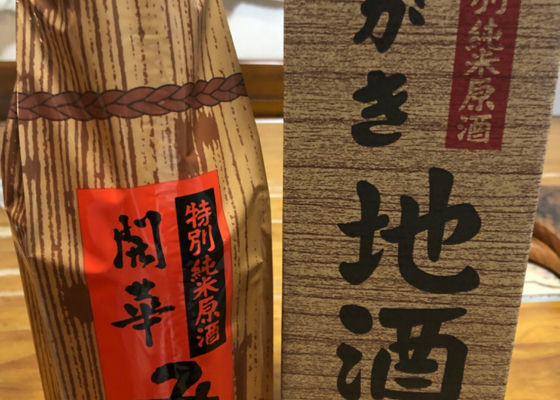 特別純米原酒
開華
み
別純米原酒
がき
地酒